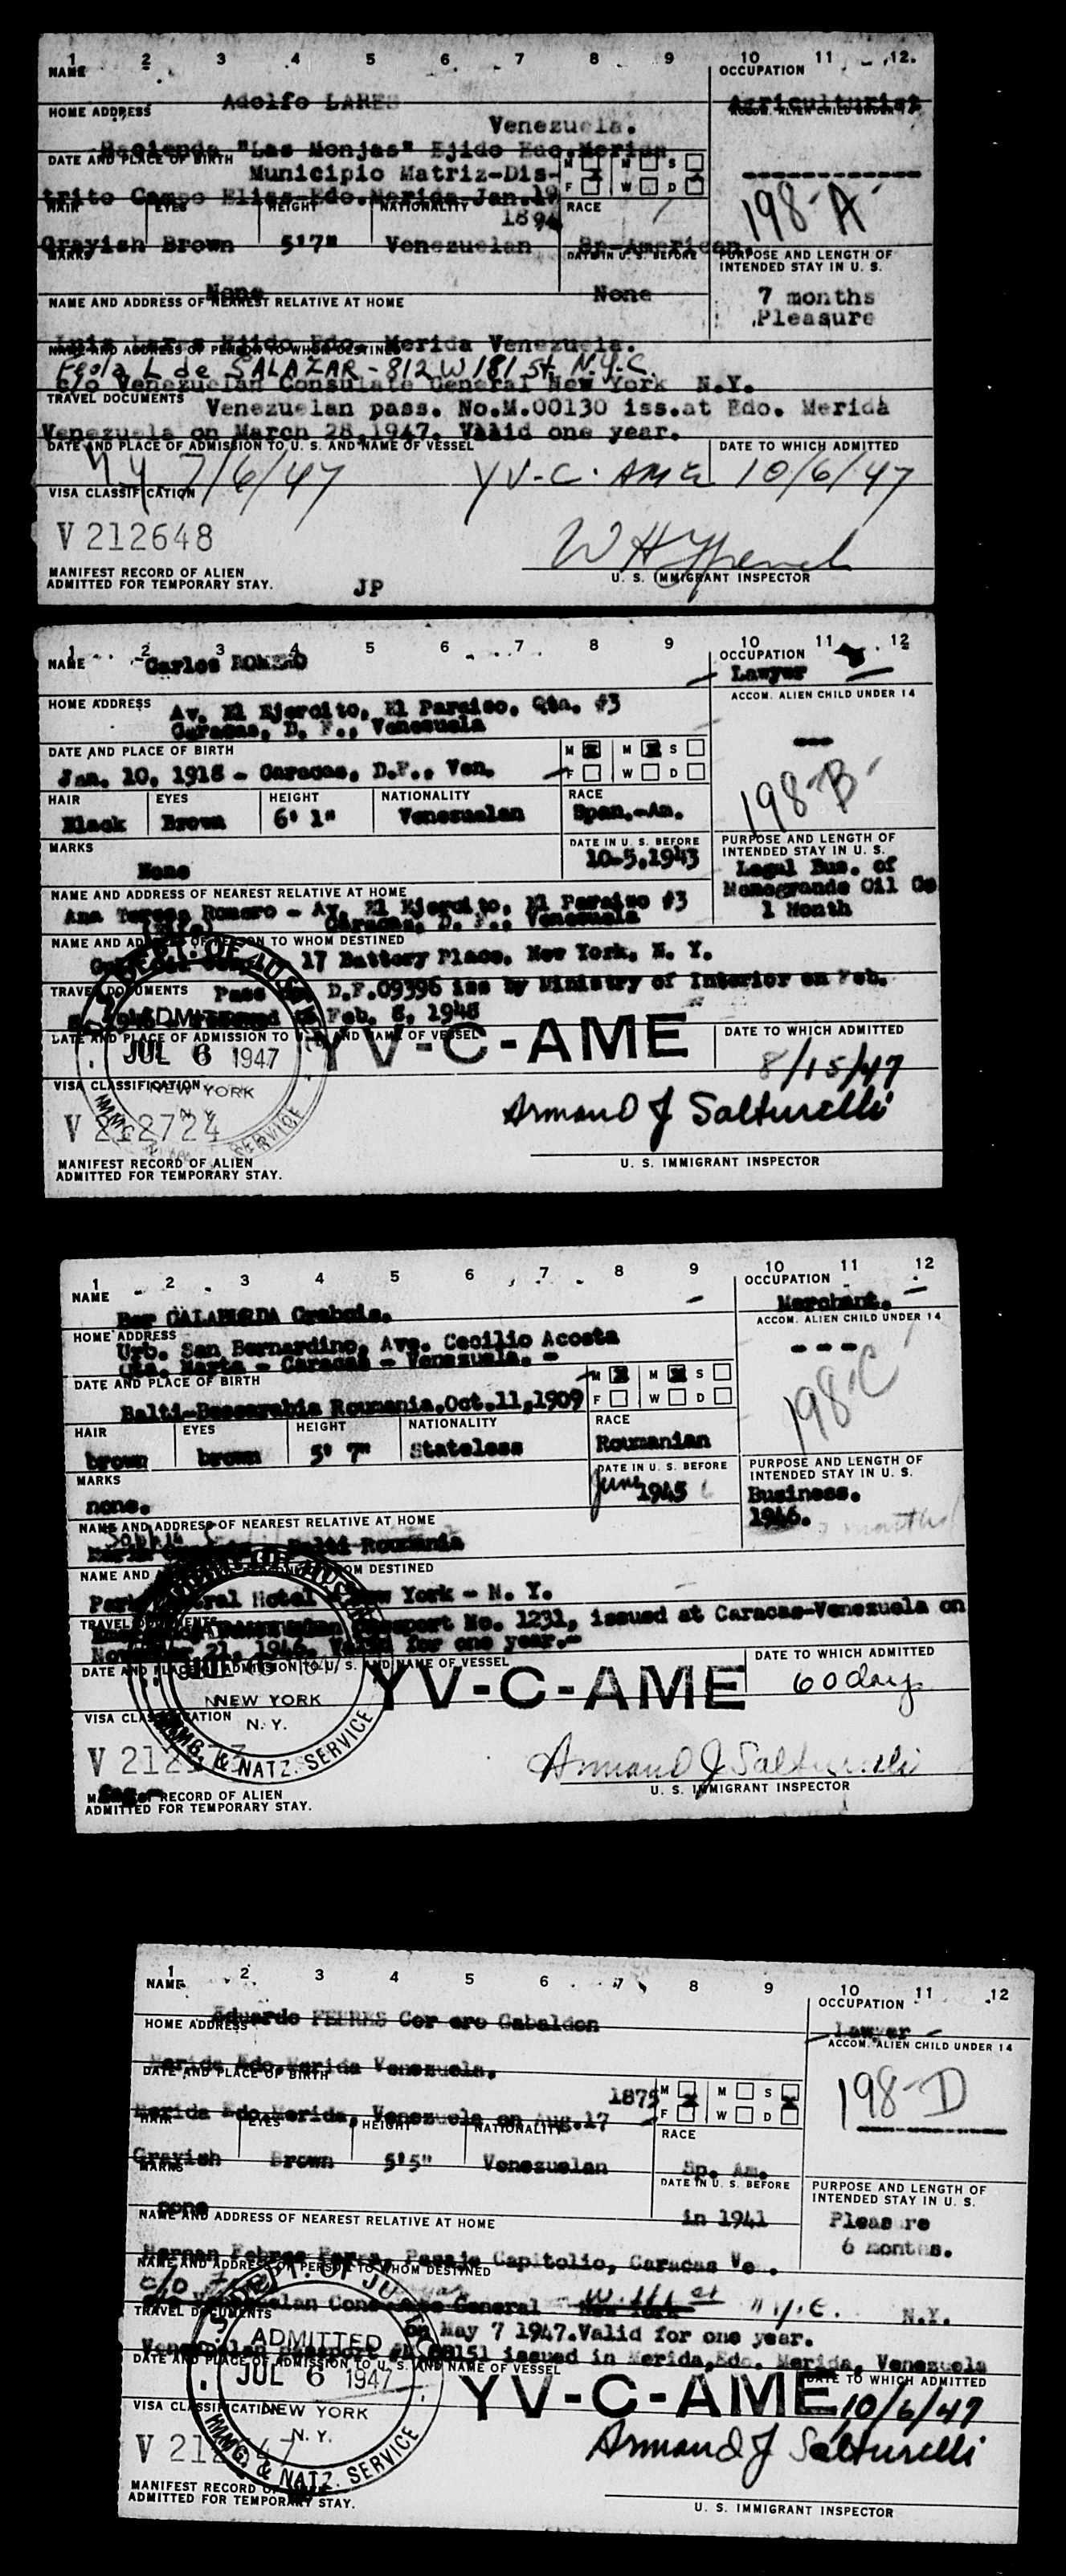 1 2 3 4 5 6 7 8 9 10 11 12
NAME OCCUPATION
Adolfo LARES Agriculturist
HOME ADDRESS ACCOM. ALIEN CHILD UNDER 14
Venezuela.
Hacienda "Las Monjas" Ejido Edo.Merida
DATE AND PLACE OF BIRTH M M S
Municipio Matriz-Dis-
F W D
trito Campo Elias-Edo.Merida-Jan.19
HAIR EYES HEIGHT NATIONALITY RACE
1894
198-A
Grayish Brown 5'7" Venezuelan Sp-American.
MARKS DATE IN U. S. BEFORE PURPOSE AND LENGTH OF
INTENDED STAY IN U. S.
None None 7 months
NAME AND ADDRESS OF NEAREST RELATIVE AT HOME
Pleasure
Luis Lares Ejido Edo. Merida Venezuela.
NAME AND ADDRESS OF PERSON TO WHOM DESTINED
L de SALAZAR - 812 W 181 St. N.Y.C.
c/o Venezuelan Consulate General New York N.Y.
TRAVEL DOCUMENTS Venezuelan pass. No.M.00130 iss.at Edo. Merida
Venezuela on March 28,1947. Valid one year.
DATE AND PLACE OF ADMISSION TO U. S. AND NAME OF VESSEL DATE TO WHICH ADMITTED
NY 7/6/47 YV-C-AME 10/6/47
VISA CLASSIFICATION
V 212648
MANIFEST RECORD OF ALIEN
ADMITTED FOR TEMPORARY STAY. JP U. S. IMMIGRANT INSPECTOR
1 2 3 4 5 6 7 8 9 10 11 12
NAME Carlos ROMERO OCCUPATION
Lawyer
HOME ADDRESS Av. El Ejercito, El Paraiso, Qta. #3 ACCOM. ALIEN CHILD UNDER 14
Caracas, D. F., Venezuela
DATE AND PLACE OF BIRTH M M S
Jan. 10, 1918 - Caracas, D.F., Ven. F W D
198-B
HAIR EYES HEIGHT NATIONALITY RACE
Black Brown 6' 1" Venezuelan Span.-Am.
MARKS DATE IN U. S. BEFORE PURPOSE AND LENGTH OF
INTENDED STAY IN U. S.
None 10-5,1943 Legal Bus. of
NAME AND ADDRESS OF NEAREST RELATIVE AT HOME Menegrande Oil Co
Ana Teresa Romero - Av. El Ejercito, El Paraiso #3 1 Month
(Wife) Caracas, D. F., Venezuela
NAME AND ADDRESS OF PERSON TO WHOM DESTINED
17 Battery Place, New York, N. Y.
TRAVEL DOCUMENTS Pass D.F.09396 iss by Ministry of Interior on Feb.
Feb. 8, 1948
ADMITTED
DATE AND PLACE OF ADMISSION TO U. S. AND NAME OF VESSEL DATE TO WHICH ADMITTED
JUL 6 1947 YV-C-AME 8/15/47
VISA CLASSIFICATION NEW YORK
N. Y.
V 212724 Armand J Salturelli
SERVICE
MANIFEST RECORD OF ALIEN
ADMITTED FOR TEMPORARY STAY. U. S. IMMIGRANT INSPECTOR
1 2 3 4 5 6 7 8 9 10 11 12
NAME OCCUPATION
Ber CALAMURDA Grabois. Merchant.
HOME ADDRESS ACCOM. ALIEN CHILD UNDER 14
Urb. San Bernardino, Ave. Cecilio Acosta
Qta. Marta - Caracas - Venezuela. -
DATE AND PLACE OF BIRTH M M S
Balti-Bessarabia Roumania.Oct.11,1909 F W D
198-C
HAIR EYES HEIGHT NATIONALITY RACE
brown brown 5' 7" Stateless Roumanian
MARKS DATE IN U. S. BEFORE PURPOSE AND LENGTH OF
INTENDED STAY IN U. S.
none. June 1945 Business.
1946. months
NAME AND ADDRESS OF NEAREST RELATIVE AT HOME
Balti Roumania
NAME AND ADDRESS OF PERSON TO WHOM DESTINED
Park Central Hotel - New York - N. Y.
TRAVEL DOCUMENTS Passport No. 1231, issued at Caracas-Venezuela on
November 21, 1946. Valid for one year.-
DATE AND PLACE OF ADMISSION TO U. S. AND NAME OF VESSEL DATE TO WHICH ADMITTED
YV-C-AME 60 days
NEW YORK
VISA CLASSIFICATION N. Y.
IMMG. & NATZ. SERVICE
Armand J Salturelli
MANIFEST RECORD OF ALIEN
ADMITTED FOR TEMPORARY STAY. U. S. IMMIGRANT INSPECTOR
1 2 3 4 5 6 7 8 9 10 11 12
NAME OCCUPATION
Eduardo FEBRES Cordero Gabaldon Lawyer
HOME ADDRESS ACCOM. ALIEN CHILD UNDER 14
Merida Edo.Merida Venezuela.
DATE AND PLACE OF BIRTH M M S
1875
Merida Edo.Merida, Venezuela on Aug.17 F W D
198-D
HAIR EYES HEIGHT NATIONALITY RACE
Grayish Brown 5'5" Venezuelan Sp. Am.
MARKS DATE IN U. S. BEFORE PURPOSE AND LENGTH OF
INTENDED STAY IN U. S.
none in 1941 Pleasure
NAME AND ADDRESS OF NEAREST RELATIVE AT HOME 6 months.
Hernan Febres Pasaje Capitolio, Caracas Ve .
NAME AND ADDRESS OF PERSON TO WHOM DESTINED
c/o Venezuelan Consulate General New York N.Y.
TRAVEL DOCUMENTS on May 7 1947.Valid for one year.
Venezuelan Passport issued in Merida,Edo. Merida, Venezuela
ADMITTED
DATE AND PLACE OF ADMISSION TO U. S. AND NAME OF VESSEL DATE TO WHICH ADMITTED
JUL 6 1947 YV-C-AME 10/6/47
VISA CLASSIFICATION NEW YORK
N. Y.
IMMG. & NATZ. SERVICE
Armand J Salturelli
MANIFEST RECORD OF ALIEN
ADMITTED FOR TEMPORARY STAY. U. S. IMMIGRANT INSPECTOR